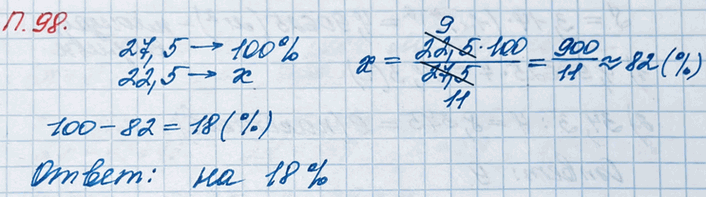 П. 98.
27,5 → 100%
22,5 → x
x = (22,5 · 100)/(27,5) = 900/11 ≈ 82 (%)
9
11
100 – 82 = 18 (%)
Ответ: на 18%